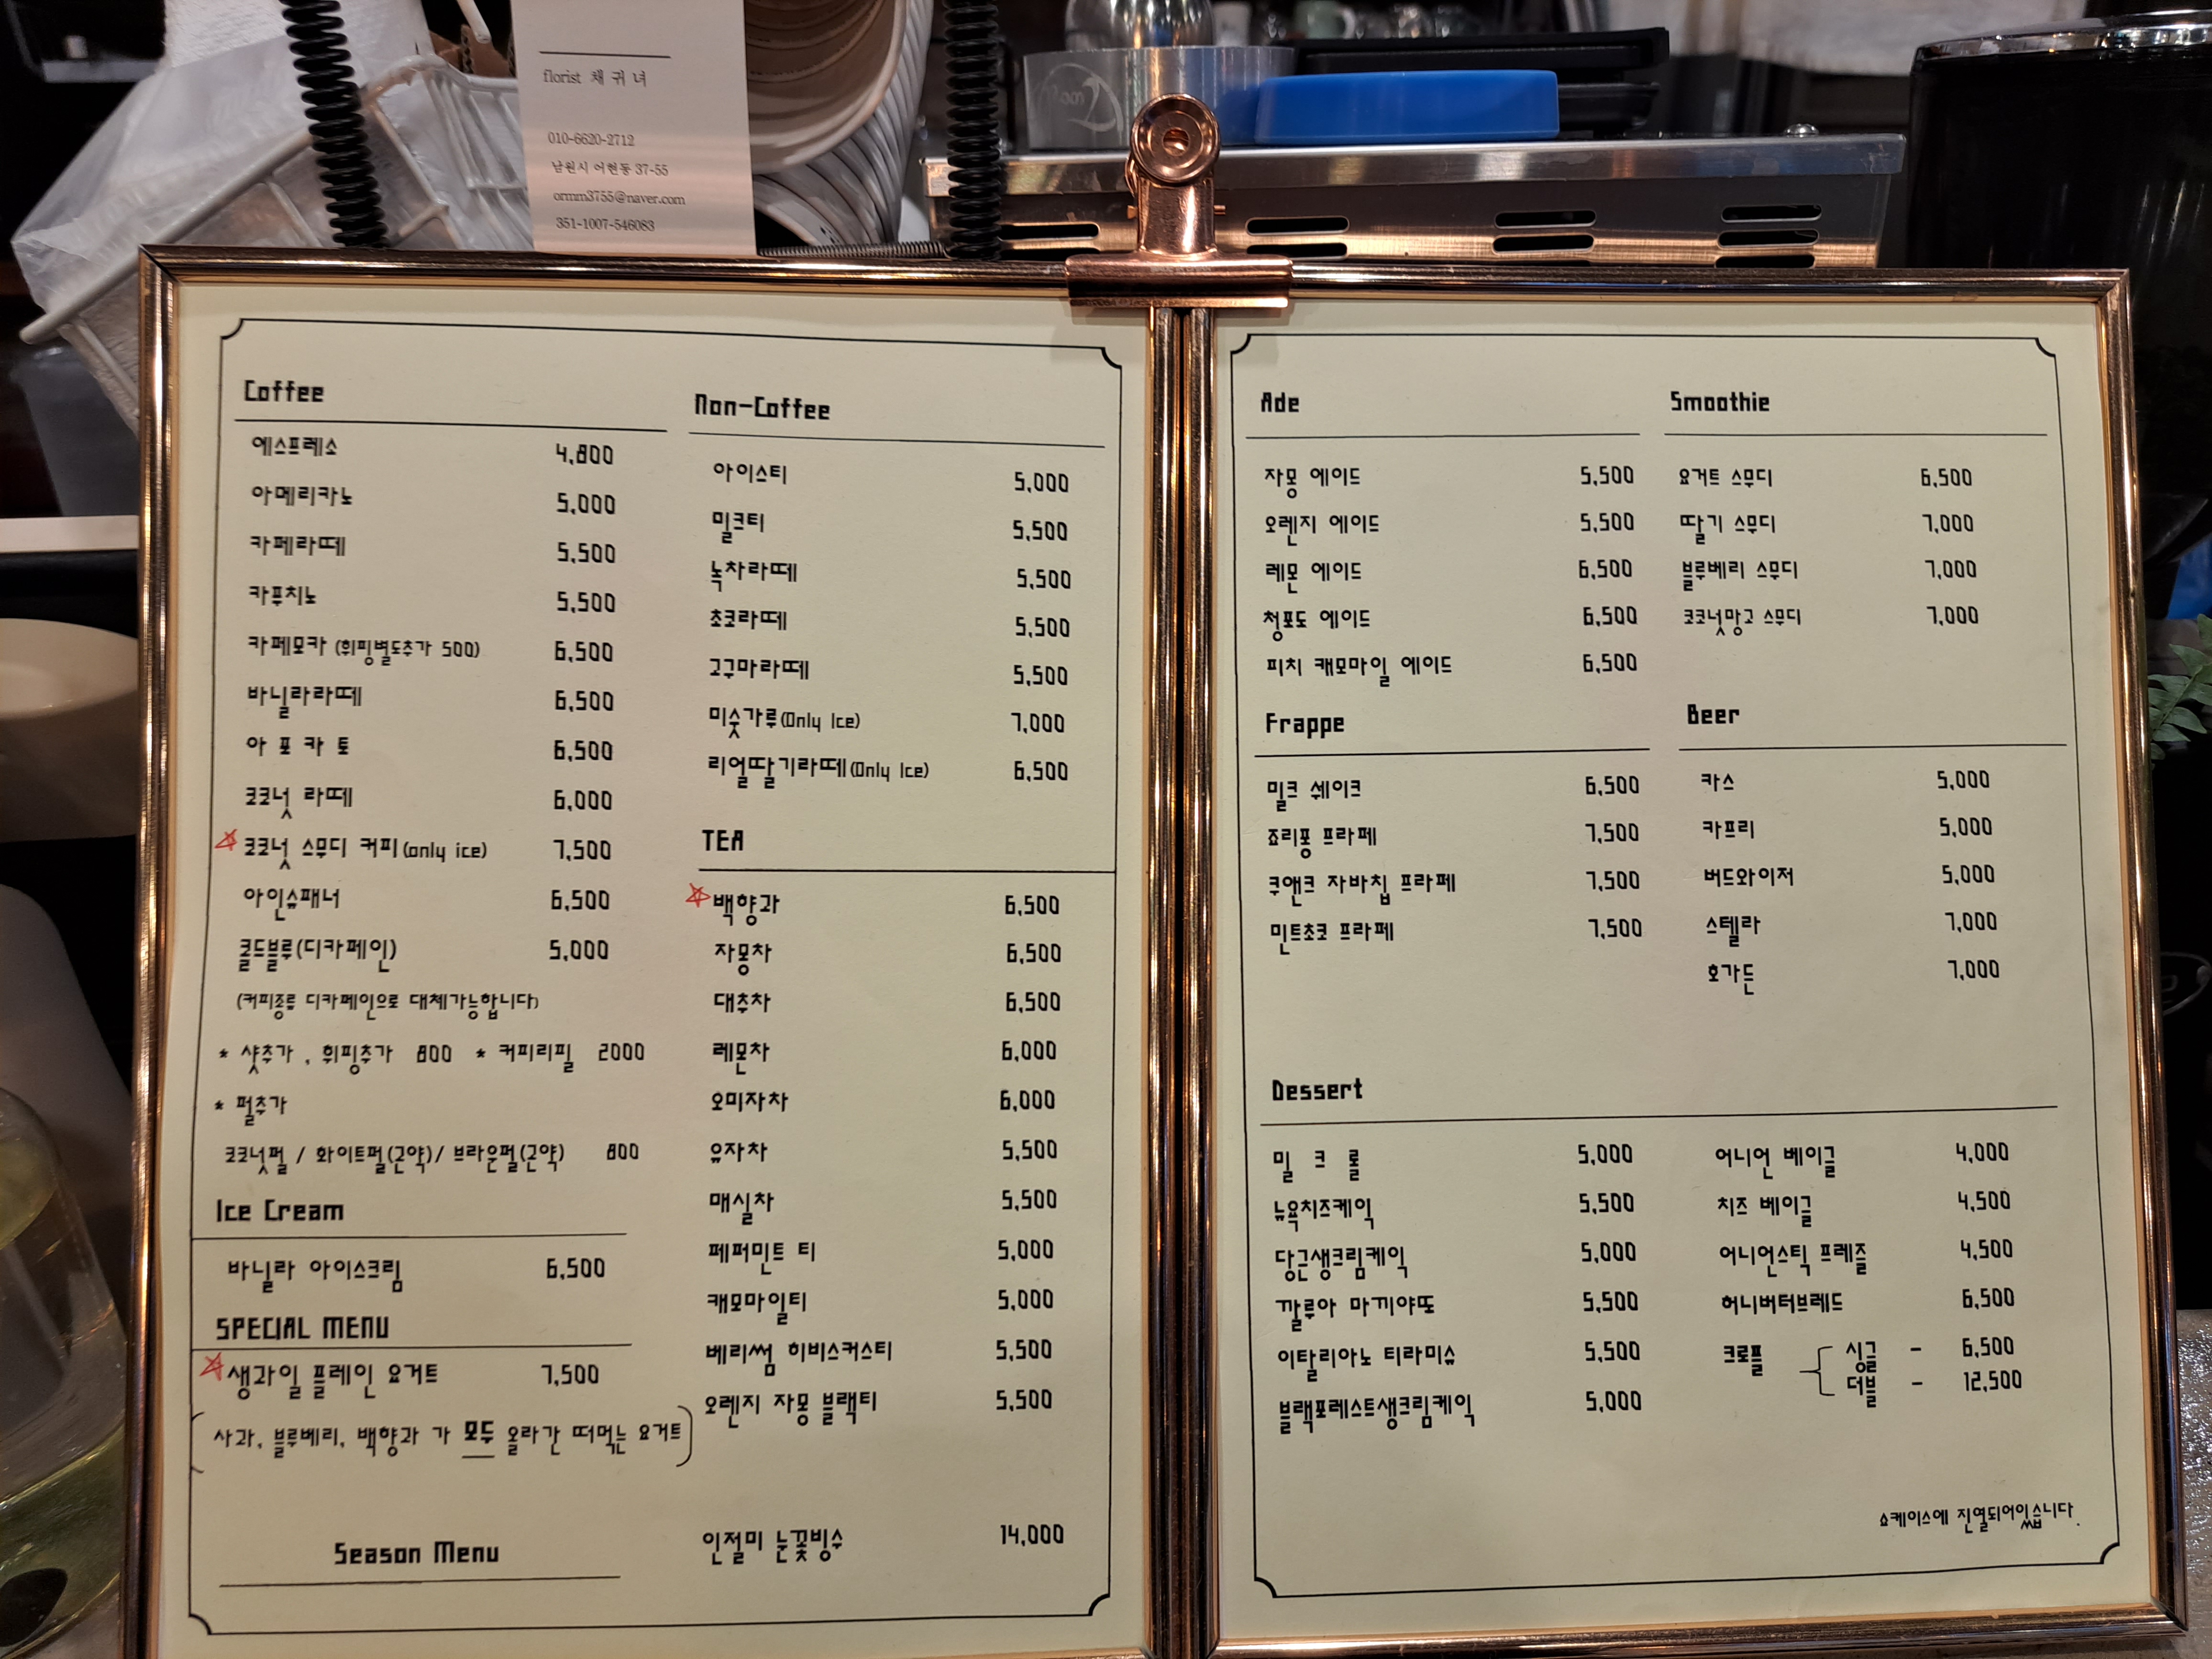 florist 채 귀 녀
010-6620-2712
남원시 어현동 37-55
ormm3755@naver.com
351-1007-546083
Coffee
에스프레소 4,800
아메리카노 5,000
카페라떼 5,500
카푸치노 5,500
카페모카 (휘핑별도추가 500) 6,500
바닐라라떼 6,500
아 포 카 토 6,500
코코넛 라떼 6,000
코코넛 스무디 커피 (only ice) 7,500
아인슈패너 6,500
콜드블루(디카페인) 5,000
(커피종류 디카페인으로 대체가능합니다)
* 샷추가 , 휘핑추가 800 * 커피리필 2000
* 펄추가
코코넛펄 / 화이트펄(곤약)/ 브라운펄(곤약) 800
Ice Cream
바닐라 아이스크림 6,500
SPECIAL MENU
생과일 플레인 요거트 7,500
(사과, 블루베리, 백향과 가 모두 올라간 떠먹는 요거트)
Season Menu
Non-Coffee
아이스티 5,000
밀크티 5,500
녹차라떼 5,500
초코라떼 5,500
고구마라떼 5,500
미숫가루(Only Ice) 7,000
리얼딸기라떼(Only Ice) 6,500
TEA
백향과 6,500
자몽차 6,500
대추차 6,500
레몬차 6,000
오미자차 6,000
유자차 5,500
매실차 5,500
페퍼민트 티 5,000
캐모마일티 5,000
베리썸 히비스커스티 5,500
오렌지 자몽 블랙티 5,500
인절미 눈꽃빙수 14,000
Ade
자몽 에이드 5,500
오렌지 에이드 5,500
레몬 에이드 6,500
청포도 에이드 6,500
피치 캐모마일 에이드 6,500
Smoothie
요거트 스무디 6,500
딸기 스무디 7,000
블루베리 스무디 7,000
코코넛망고 스무디 7,000
Frappe
밀크 쉐이크 6,500
죠리퐁 프라페 7,500
쿠앤크 자바칩 프라페 7,500
민트초코 프라페 7,500
Beer
카스 5,000
카프리 5,000
버드와이저 5,000
스텔라 7,000
호가든 7,000
Dessert
밀 크 롤 5,000
뉴욕치즈케익 5,500
당근생크림케익 5,000
깔루아 마끼야또 5,500
이탈리아노 티라미슈 5,500
블랙포레스트생크림케익 5,000
어니언 베이글 4,000
치즈 베이글 4,500
어니언스틱 프레즐 4,500
허니버터브레드 6,500
크로플 싱글 - 6,500
더블 - 12,500
쇼케이스에 진열되어있습니다.